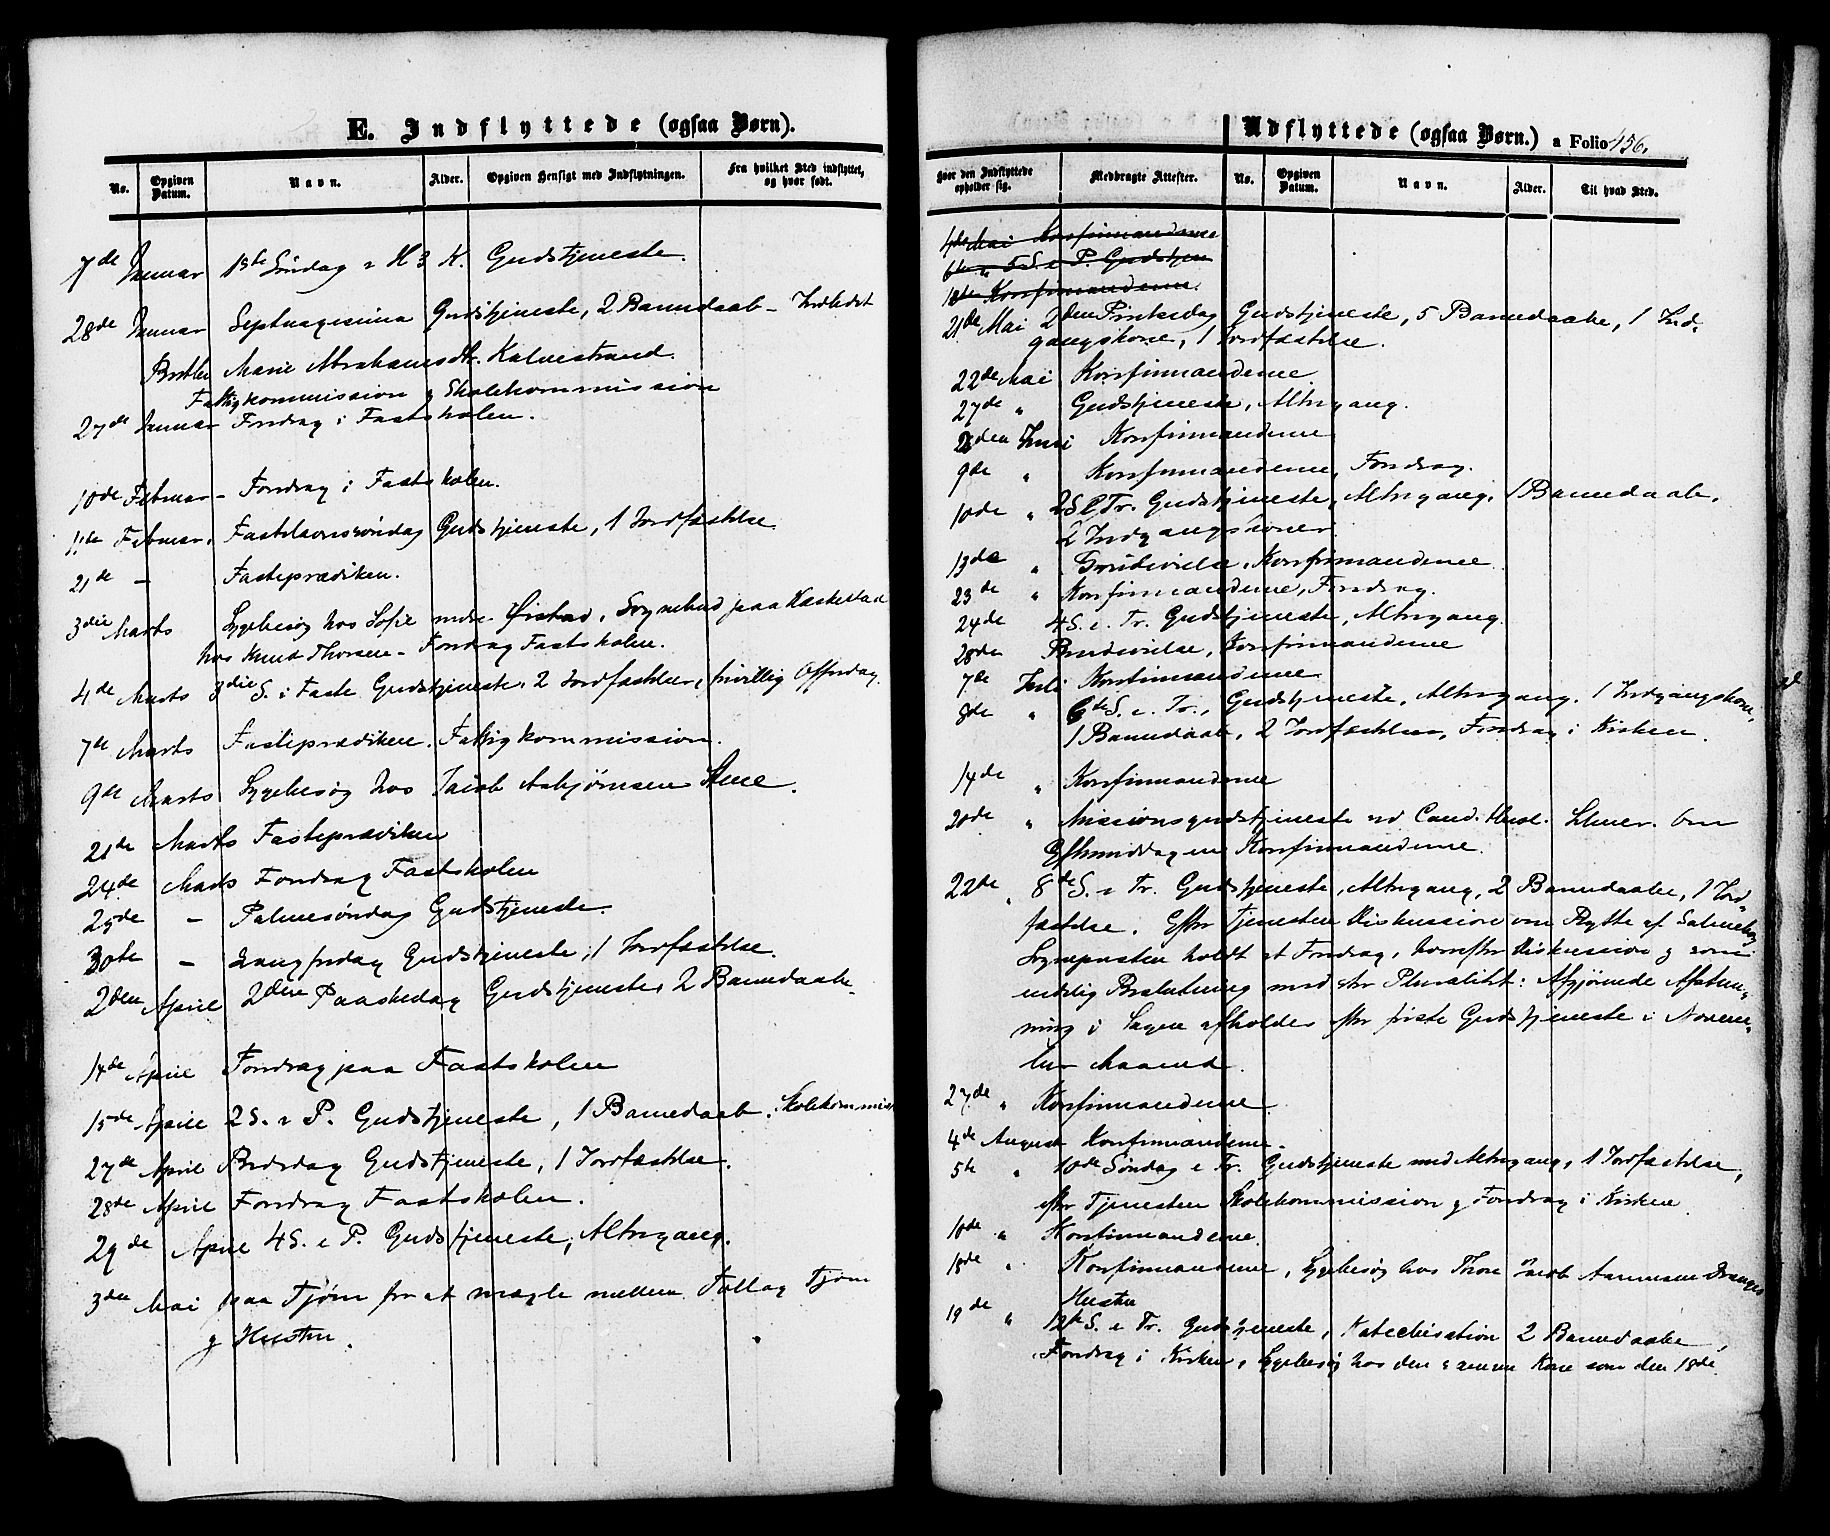 E. Indflyttede (ogsaa Børn).
No.
Opgiven Datum.
Navn.
Alder.
Opgiven Hensigt med Indflytningen.
Fra hvilket Sted indflyttet, og hvor født.
7de Januar 1ste Søndag e H 3 K. Gudstjeneste.
28de Januar Septuagesima Gudstjeneste, 2 Barnedaab –
Marie Abrahamsdtr. Kalvestrand.
Fattigkommission og Skolekommission
27de Januar Foredrag i Fastskolen.
10de Februar – Foredrag i Fastskolen.
11te Februar. Fastelavnssøndag Gudstjeneste, 1 Jordfæstelse
21de – Fasteprædiken.
3die Marts Sygebesøg hos Sofie nedre Ørstad, Sognebud paa
hos Knud Thorsen – Foredrag Fastskolen.
4de Marts 3die S. i Faste Gudstjeneste, 2 Jordfæstelser, frivillig Offerdag.
7de Marts Fasteprædiken. Fattigkommission.
9de Marts Sygebesøg hos Jacob Asbjørnsen
21de Marts Fasteprædiken
24de Marts Foredrag Fastskolen
25de – Palmesøndag Gudstjeneste.
30te – Langfredag Gudstjeneste, 1 Jordfæstelse.
2den April 2den Paaskedag Gudstjeneste, 2 Barnedaabe.
14de April Foredrag paa Fastskolen
15de April 2 S. e P. Gudstjeneste, 1 Barnedaab. Skolekommis
27de April Bededag Gudstjeneste, 1 Jordfæstelse.
28de April Foredrag Fastskolen.
29de April 4 S. e P. Gudstjeneste, Altergang.
3die Mai paa Tjøm for at mægle mellem Tollag Tjøm
og Hustru.
Udflyttede (ogsaa Børn.) a Folio 456.
Hvor den Indflyttede opholder sig.
Medbragte Attester.
No.
Opgiven Datum.
Navn.
Alder.
Til hvad Sted.
4de Mai Konfirmanderne
6te " 5 S. e P. Gudstjen
Konfirmanderne.
21de Mai 2den Pinksdag Gudstjeneste, 5 Barnedaabe, 1 Ind-
gangskone, 1 Jordfæstelse.
22de Mai Konfirmanderne
27de " Gudstjeneste, Altergang.
2den Juni Konfirmanderne
9de " Konfirmanderne, Foredrag.
10de " 2 S e Tr. Gudstjeneste, Altergang, 1 Barnedaab,
2 Indgangskoner
13de " Brudevielse, Konfirmanderne
23de " Konfirmanderne, Foredrag.
24de 4 S. e. Tr. Gudstjeneste, Altergang.
28de Brudevielse, Konfirmanderne
7de Juli Konfirmanderne
8de " 6te S. e. Tr., Gudstjeneste, Altergang. 1 Indgangskone,
1 Barnedaab, 2 Jordfæstelser, Foredrag i Kirken.
14de " Konfirmanderne
20de " Missionsgudstjeneste ved Cand. theol. Om
Eftermiddagen Konfirmanderne.
22de " 8de S. e Tr. Gudstjeneste, Altergang, 2 Barnedaabe, 1 Jord-
fæstelse. Efter Tjenesten Diskussion om Bytte af Salmebog
Sognepresten holdt et Foredrag, hvorefter Diskussion og som
endelig Beslutning med stor Pluralitet: Afgjørende Afstem-
ning i Sagen afholdes efter første Gudstjeneste i Novem-
ber Maaned.
27de " Konfirmanderne
4de August Konfirmanderne.
5te " 10de Søndag e Tr. Gudstjeneste med Altergang, 1 Jordfæstelse,
efter Tjenesten Skolekommission og Foredrag i Kirken
10de " Konfirmanderne.
18de " Konfirmanderne, Sygebesøg hos Thore Jacob Aanensen Dranges
Hustru
19de " 12te S. e Tr. Gudstjeneste, Katechisation 2 Barnedaabe,
Foredrag i Kirken, Sygebesøg hos den samme Kone som den 18de.